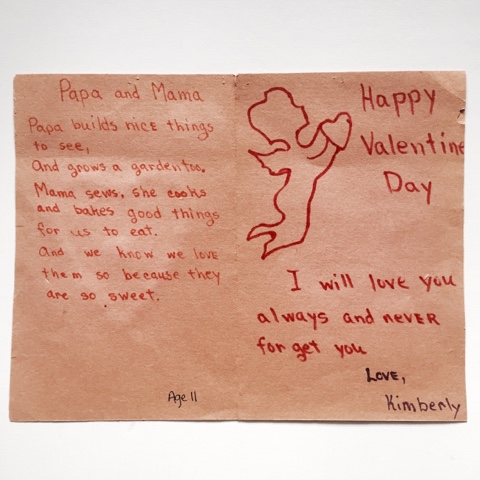 Papa and Mama
Papa builds nice things
to see,
And grows a garden too.
Mama sews, she cooks
and bakes good things
for us to eat.
And we know we love
them so because they
are so sweet.
Age 11
Happy
Valentine
Day
I will love you
always and never
for get you
Love,
Kimberly